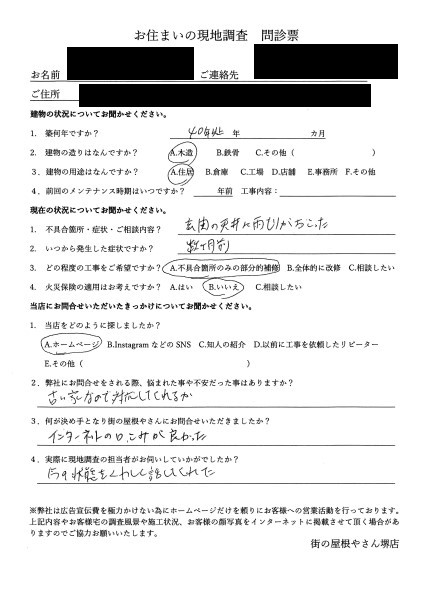 お住まいの現地調査　問診票
お名前　ご連絡先
ご住所
建物の状況についてお聞かせください。
1.　築何年ですか？　40年以上　年　カ月
2.　建物の造りはなんですか？　A.木造　B.鉄骨　C.その他（　）
3．建物の用途はなんですか？　A.住居　B.倉庫　C.工場　D.店舗　E.事務所　F.その他
4．前回のメンテナンス時期はいつですか？　年前　工事内容：
現在の状況についてお聞かせください。
1.　不具合箇所・症状・ご相談内容？　玄関の天井に雨ジミがおこった
2.　いつから発生した症状ですか？　数ヶ月前
3.　どの程度の工事をご希望ですか？　A.不具合箇所のみの部分的補修　B.全体的に改修　C.相談したい
4.　火災保険の適用はお考えですか？　A.はい　B.いいえ　C.相談したい
当店にお問合せいただいたきっかけについてお聞かせください。
1.　当店をどのように探しましたか？
A.ホームページ　B.Instagram などの SNS　C.知人の紹介　D.以前に工事を依頼したリピーター
E.その他（　）
2．弊社にお問合せをされる際、悩まれた事や不安だった事はありますか？
古い家なので対応してくれるか
3．何が決め手となり街の屋根やさんにお問合せいただきましたか？
インターネットの口コミが良かった
4．実際に現地調査の担当者がお伺いしていかがでしたか？
今の状態をくわしく話してくれた
※弊社は広告宣伝費を極力かけない為にホームページだけを頼りにお客様への営業活動を行っております。
上記内容やお客様宅の調査風景や施工状況、お客様の顔写真をインターネットに掲載させて頂く場合があ
りますのでご協力お願いいたします。
街の屋根やさん堺店